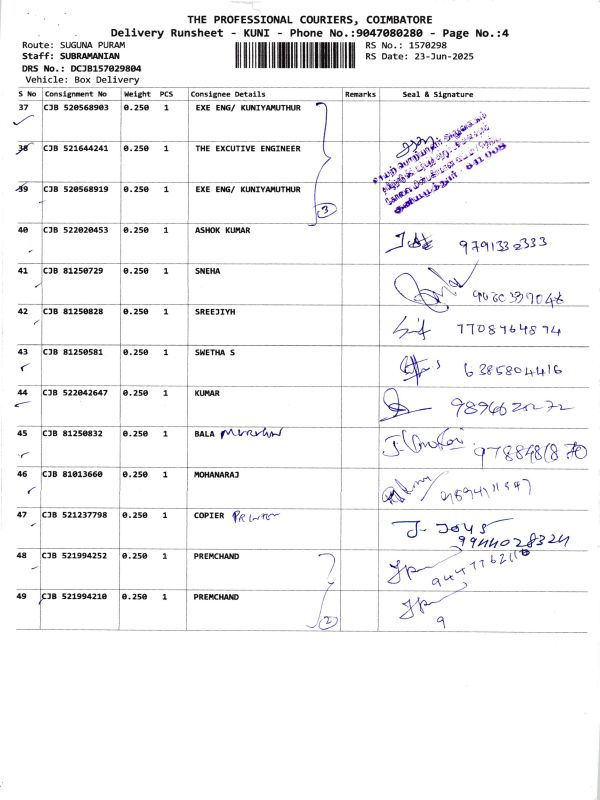 THE PROFESSIONAL COURIERS, COIMBATORE
Delivery Runsheet - KUNI - Phone No.:9047080280 - Page No.:4
Route: SUGUNA PURAM RS No.: 1570298
Staff: SUBRAMANIAN RS Date: 23-Jun-2025
DRS No.: DCJB157029804
Vehicle: Box Delivery
S No Consignment No Weight PCS Consignee Details Remarks Seal & Signature
37 CJB 520568903 0.250 1 EXE ENG/ KUNIYAMUTHUR
38 CJB 521644241 0.250 1 THE EXCUTIVE ENGINEER
39 CJB 520568919 0.250 1 EXE ENG/ KUNIYAMUTHUR
3
40 CJB 522020453 0.250 1 ASHOK KUMAR 9791332333
41 CJB 81250729 0.250 1 SNEHA
42 CJB 81250828 0.250 1 SREEJIYH 7708764874
43 CJB 81250581 0.250 1 SWETHA S 6385804416
44 CJB 522042647 0.250 1 KUMAR
45 CJB 81250832 0.250 1 BALA
46 CJB 81013660 0.250 1 MOHANARAJ
47 CJB 521237798 0.250 1 COPIER PRINTER
9944028324
48 CJB 521994252 0.250 1 PREMCHAND
49 CJB 521994210 0.250 1 PREMCHAND
2 9